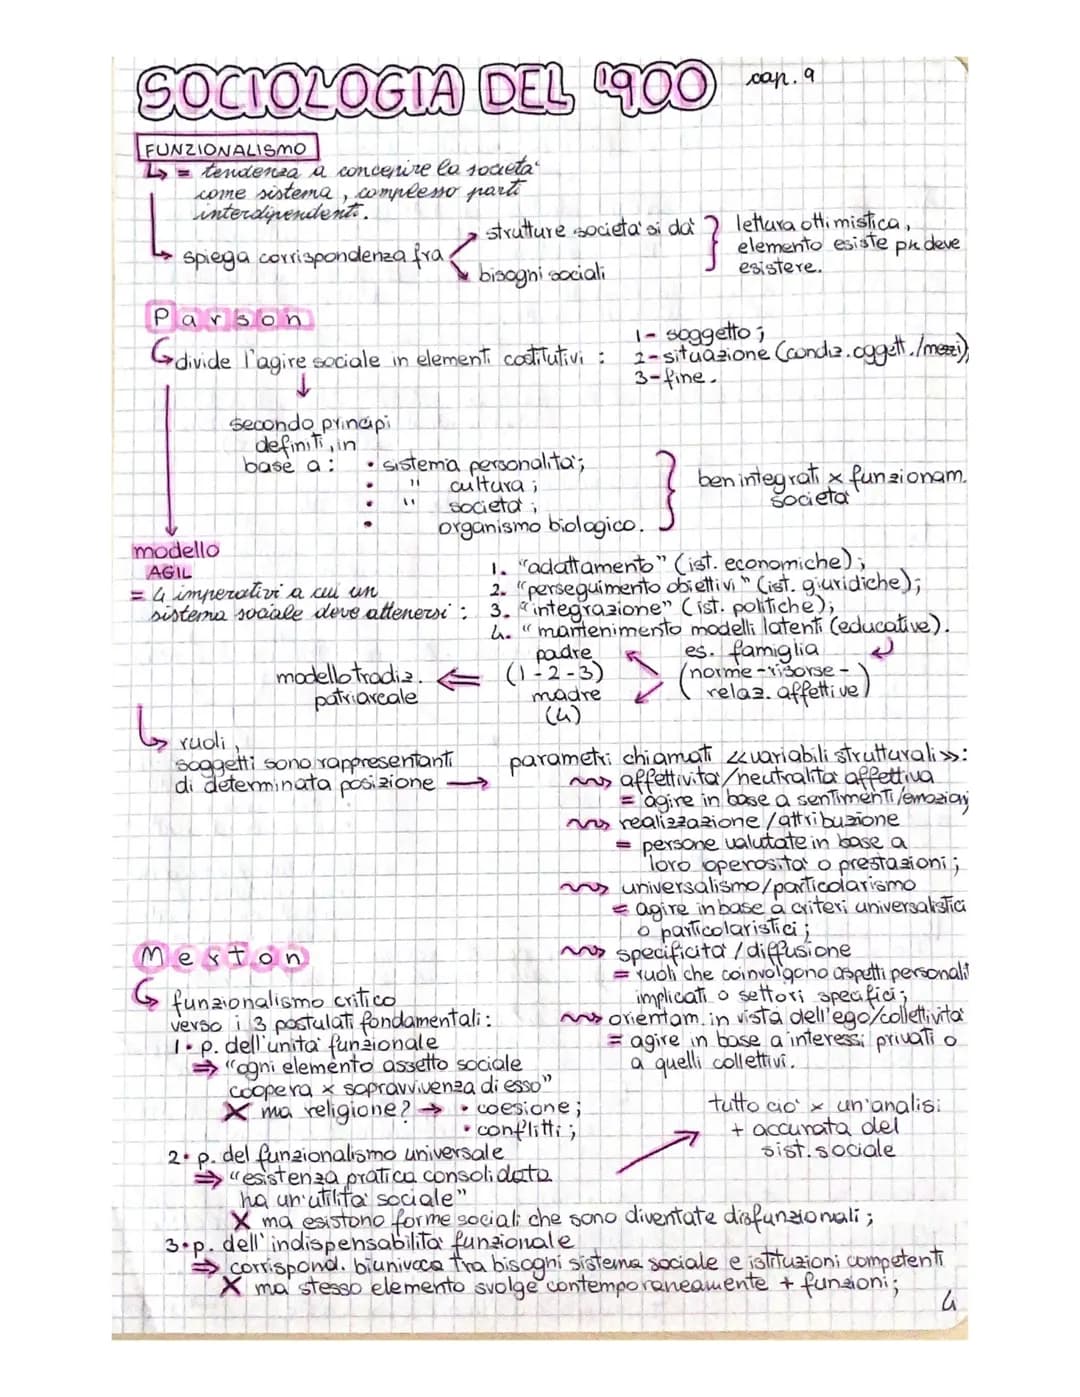 SOCIOLOGIA DEL 1900 cap. 9
FUNZIONALISMO
= tendenza a concepire la società
come sistema, complesso parti
interdipendenti.
spiega corrispondenza fra
strutture società si dà
bisogni sociali
lettura ottimistica,
elemento esiste pk deve
esistere.
Parson
divide l'agire sociale in elementi costitutivi :
1- soggetto;
2- situazione (condiz. oggett./mezzi);
3- fine.
secondo principi
definiti, in
base a :
• sistema personalità;
• " cultura;
• " società;
• organismo biologico.
ben integrati x funzionam.
società
modello
AGIL
= 4 imperativi a cui un
sistema sociale deve attenersi :
1. "adattamento" (ist. economiche);
2. "perseguimento obiettivi" (ist. giuridiche);
3. "integrazione" (ist. politiche);
4. "mantenimento modelli latenti (educative).
es. famiglia
(norme-risorse-
relaz. affettive)
padre
(1-2-3)
madre
(4)
modello tradiz.
patriarcale
ruoli,
soggetti sono rappresentanti
di determinata posizione
parametri chiamati «variabili strutturali»:
affettività/neutralità affettiva
= agire in base a sentimenti/emozioni
realizzazione/attribuzione
= persone valutate in base a
loro operosità o prestazioni;
universalismo/particolarismo
= agire in base a criteri universalistici
o particolaristici;
specificità/diffusione
= ruoli che coinvolgono aspetti personali
implicati o settori specifici;
orientam. in vista dell'ego/collettività
= agire in base a interessi privati o
a quelli collettivi.
Merton
funzionalismo critico
verso i 3 postulati fondamentali:
1• p. dell'unità funzionale
⇒ "ogni elemento assetto sociale
coopera x sopravvivenza di esso"
X ma religione? → • coesione;
• conflitti;
2• p. del funzionalismo universale
⇒ "esistenza pratica consolidata
ha un'utilità sociale"
X ma esistono forme sociali che sono diventate disfunzionali;
tutto ciò x un'analisi
+ accurata del
sist. sociale
3•p. dell'indispensabilità funzionale
⇒ corrispond. biunivoca tra bisogni sistema sociale e istituzioni competenti
X ma stesso elemento svolge contemporaneamente + funzioni;
4